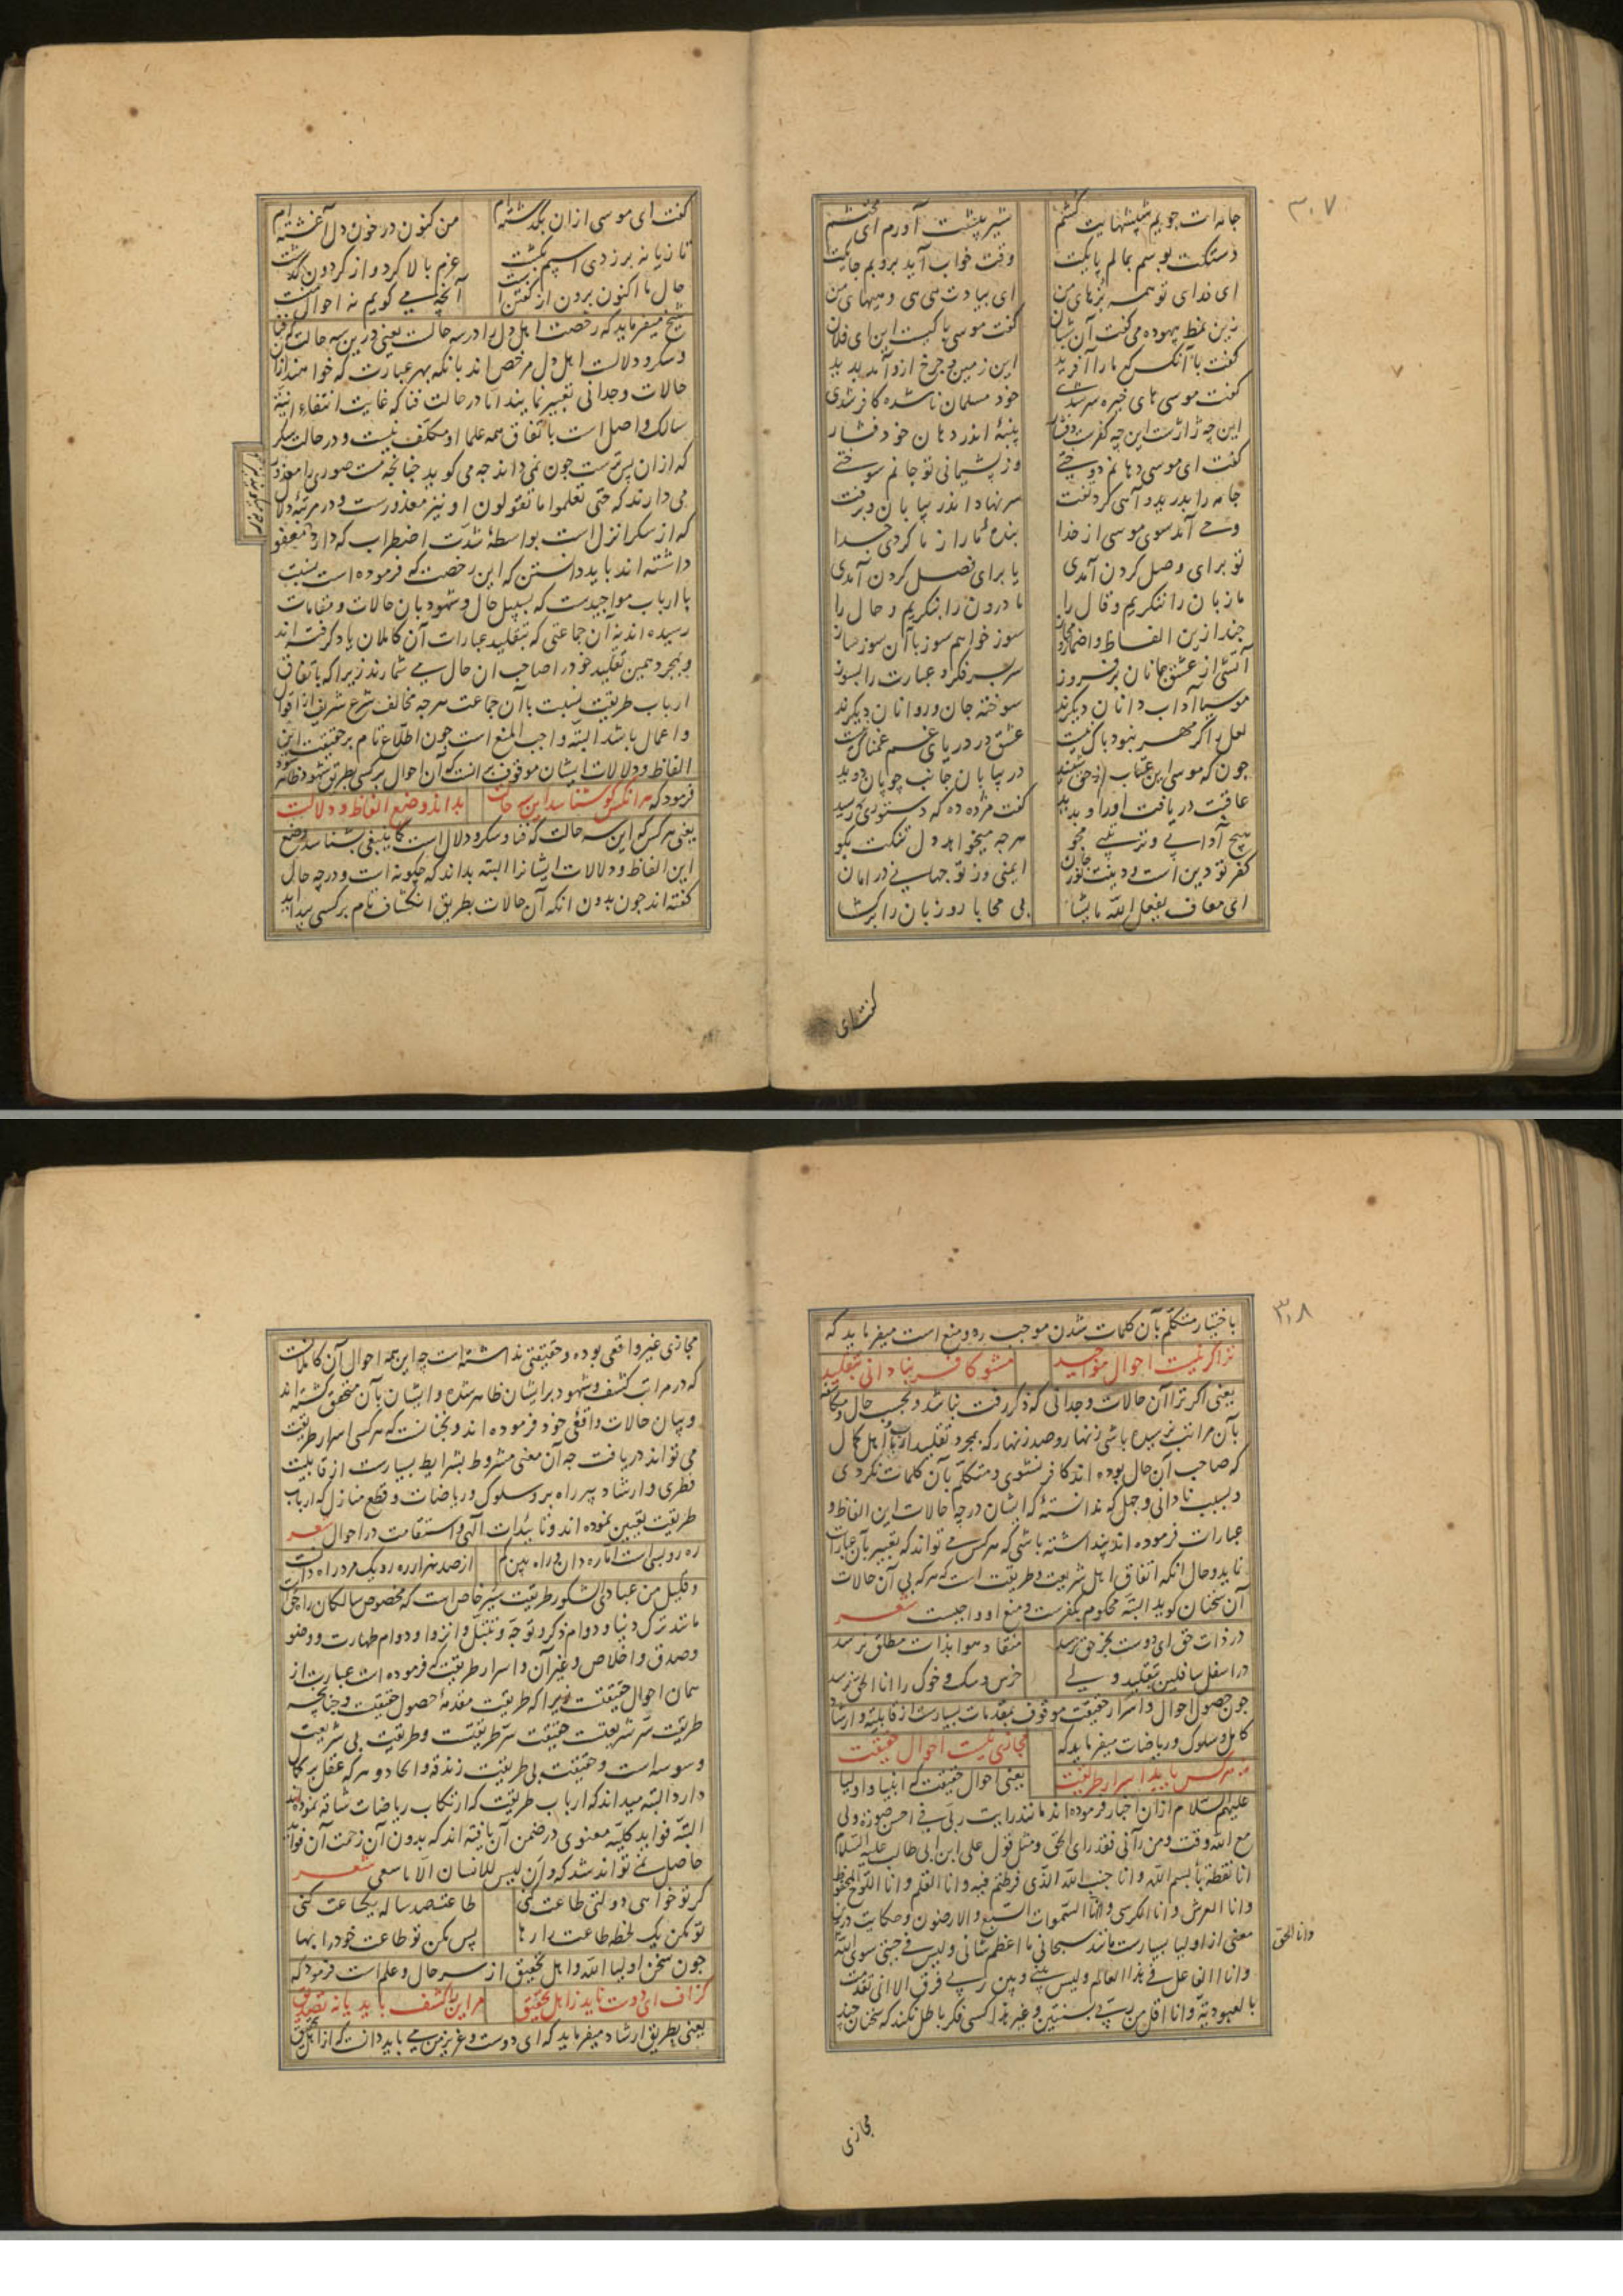 ۳۰۷
جامه‌ات جویم شپشهایت کشم شیر پیشت آورم ای محتشم
دستکت بوسم بمالم پایکت وقت خواب آید بروبم جایکت
ای فدای تو همه بزهای من ای بیادت هی هی و هیهای من
زین نمط بیهوده می گفت آن شبان گفت موسی با کیست این ای فلان
گفت با آنکس که ما را آفرید این زمین و چرخ ازو آمد بدید
گفت موسی های خیره سر شدی خود مسلمان ناشده کافر شدی
این چه ژاژست این چه کفرست و فشار پنبۀ اندر دهان خود فشار
گفت ای موسی دهانم دوختی وز پشیمانی تو جانم سوختی
جامه را بدرید و آهی کرد تفت سر نهاد اندر بیابان و برفت
وحی آمد سوی موسی از خدا بنده ما را ز ما کردی جدا
تو برای وصل کردن آمدی یا برای فصل کردن آمدی
ما زبان را ننگریم و قال را ما درون را بنگریم و حال را
چند ازین الفاظ و اضمار و مجاز سوز خواهم سوز با آن سوز ساز
آتشی از عشق جانان برفروز سربسر فکر و عبارت را بسوز
موسیا آداب دانان دیگرند سوخته جان و روانان دیگرند
لعل را گر مهر نبود باک نیست عشق در دریای غم غمناک نیست
چون که موسی این عتاب از حق شنید در بیابان جانب چوپان دوید
عاقبت دریافت او را و بدید گفت مژده ده که دستوری رسید
هیچ آدابی و ترتیبی مجو هرچه میخواهد دل تنگت بگو
کفر تو دین است و دینت نور جان ایمنی وز تو جهانی در امان
ای معاف یفعل الله ما یشا بی محابا رو زبان را برگشا
گفت ای
گفت ای موسی از آن بگذشته‌ام من کنون در خون دل آغشته‌ام
تازیانه برزدی اسپم بگشت عزم بالا کرد و از گردون گذشت
حال ما اکنون برون از گفتن است آنچه می گویم نه احوال منست
شیخ میفرماید که رخصت اهل دل را در سه حالت یعنی درین سه حالت که فنا
و سکر و دلالست اهل دل مرخص اند بانکه بهر عبارت که خواهند از آن
حالات وجدانی تعبیر نمایند اما در حالت فنا که غایت انتفاء انیّة
سالک واصل است باتفاق همه علما او مکلف نیست و در حالت سکر
که از آن پس مست چون نمی داند چه می گوید چنانچه مست صوری را معذور
می دارند که حتی تعلموا ما تقولون او نیز معذورست و در مرتبۀ دلال
که از سکر انزل است بواسطۀ شدّت اضطراب که دارد معفو
داشته اند باید دانستن که این رخصت که فرموده است نسبت
با ارباب مواجیدست که بسبیل حال و شهود بان حالات و مقامات
رسیده اند نه آن جماعتی که بتقلید عبارات آن کاملان یاد گرفته اند
و بمجرد همین تقلید خود را صاحب ان حال می شمارند زیرا که باتفاق
ارباب طریقت نسبت بآن جماعت هرچه مخالف شرع شریف از اقوال
و اعمال باشد البته واجب المنع است چون اطلاع تام بر حقیقت این
الفاظ و دلالات ایشان موقوف بر انست که آن احوال بر کسی بطریق شهود ظاهر شود
فرمود که هر انکس کو شناسد این سه حالت بداند وضع الفاظ و دلالت
یعنی هر کس که این سه حالت که فنا و سکر و دلال است کما ینبغی بشناسد وضع
این الفاظ و دلالات ایشانرا البته بداند که چگونه است و در چه حال
گفته اند چون بدون انکه آن حالات بطریق انکشاف تام بر کسی پیدا آید
۳۰۸
باختیار متکلم بآن کلمات شدن موجب رد و منع است میفرماید که
ترا گر نیست احوال مواجید مشو کافر بنادانی بتقلید
یعنی اگر ترا آن حالات وجدانی که ذکر رفت نباشد و بحسب حال و مکاشفه
بآن مراتب نرسیده باشی زنهار و صد زنهار که بمجرد تقلید ارباب و اهل کمال
که صاحب آن حال بوده اند کافر نشوی و متکلم بآن کلمات نگردی
و بسبب نادانی و جهل که ندانستۀ که ایشان در چه حالات این الفاظ و
عبارات فرموده اند پنداشته باشی که هر کس می تواند که تعبیر بآن عبارات
نماید و حال انکه اتفاق اهل شریعت و طریقت است که هر که بی آن حالات
آن سخنان گوید البته محکوم بکفرست و منع او واجبست شعر
در ذات حق ای دوست بجز حق نرسد منقاد هوا بذات مطلق نرسد
در اسفل سافلین بتقلید ولی خرس و سگ و خوک را انا الحق نرسد
چون حصول احوال و اسرار حقیقت موقوف بمقدمات بسیارست از قابلیة و ارشاد
کامل و سلوک و ریاضات میفرماید که مجازی نیست احوال حقیقت
نه هر کس یابد اسرار طریقت یعنی احوال حقیقت که انبیا و اولیا
علیهم السلام از ان اخبار فرموده اند مانند رایت ربی فی احسن صورة ولی
مع الله وقت و من رآنی فقد رای الحق و مثل قول علی ابن ابی طالب علیه السلام
انا نقطة باء بسم الله و انا جنب الله الذی فرطتم فیه و انا القلم و انا اللوح المحفوظ
و انا العرش و انا الکرسی و انا السموات السبع و الارضون و حکایت درین
معنی از اولیا بسیارست مانند سبحانی ما اعظم شانی و لیس فی جبتی سوی الله
وانا الحق
و انا اقل فی هذا العالم و لیس بینی و بین ربی فرق الا انی تقدمت
بالعبودیة و انا اقل من ربی بسنتین و غیر هذا کسی فکر باطل نکند که سخنان چند
مجازی
مجازی غیر واقعی بوده و حقیقتی نداشته است چه این همه احوال آن کاملانست
که در مراتب کشف و شهود بر ایشان ظاهر شده و ایشان بآن متحقق گشته اند
و بیان حالات واقعی خود فرموده اند و نچنانست که هر کسی اسرار طریقت
می تواند دریافت چه آن معنی مشروط بشرایط بسیارست از قابلیت
فطری و ارشاد پیر راه بر و سلوک و ریاضات و قطع منازل که ارباب
طریقت تعیین نموده اند و تائیدات الهی و استقامت در احوال شعر
ره رو بسی است اما ره دان و راه بین کم از صد هزار ره رو یک مرد راه دانست
و قلیل من عبادی الشکور طریقت سیر خاص است که مخصوص سالکان راه حق است
مانند ترک دنیا و دوام ذکر و توجه و تبتل و انزوا و دوام طهارت و وضو
و صدق و اخلاص و غیر آن و اسرار طریقت که فرموده است عبارت از
همان احوال حقیقت زیرا که طریقت مقدمۀ حصول حقیقت و چنانچه
طریقت سر شریعتست حقیقت سر طریقتست و طریقت بی شریعت
وسوسه است و حقیقت بی طریقت زندقه و الحاد و هر که عقل بر کمال
دارد البته میداند که ارباب طریقت که ارتکاب ریاضات شاقه نموده اند
البته فواید کلیۀ معنوی در ضمن آن یافته اند که بدون آن زحمت آن فواید
حاصل نمی تواند شد که و ان لیس للانسان الا ما سعی شعر
گر تو خواهی دولتی طاعت کنی طاعت صد ساله یکساعت کنی
تو مکن یک لحظه طاعت را رها پس مکن تو طاعت خود را بها
چون سخن اولیاء الله و اهل تحقیق از سر حال و علم است فرمود که
گزاف ای دوست ناید ز اهل تحقیق مر این را کشف باید یا نه تصدیق
یعنی بطریق ارشاد میفرماید که ای دوست و عزیز من می باید دانست که از اهل تحقیق